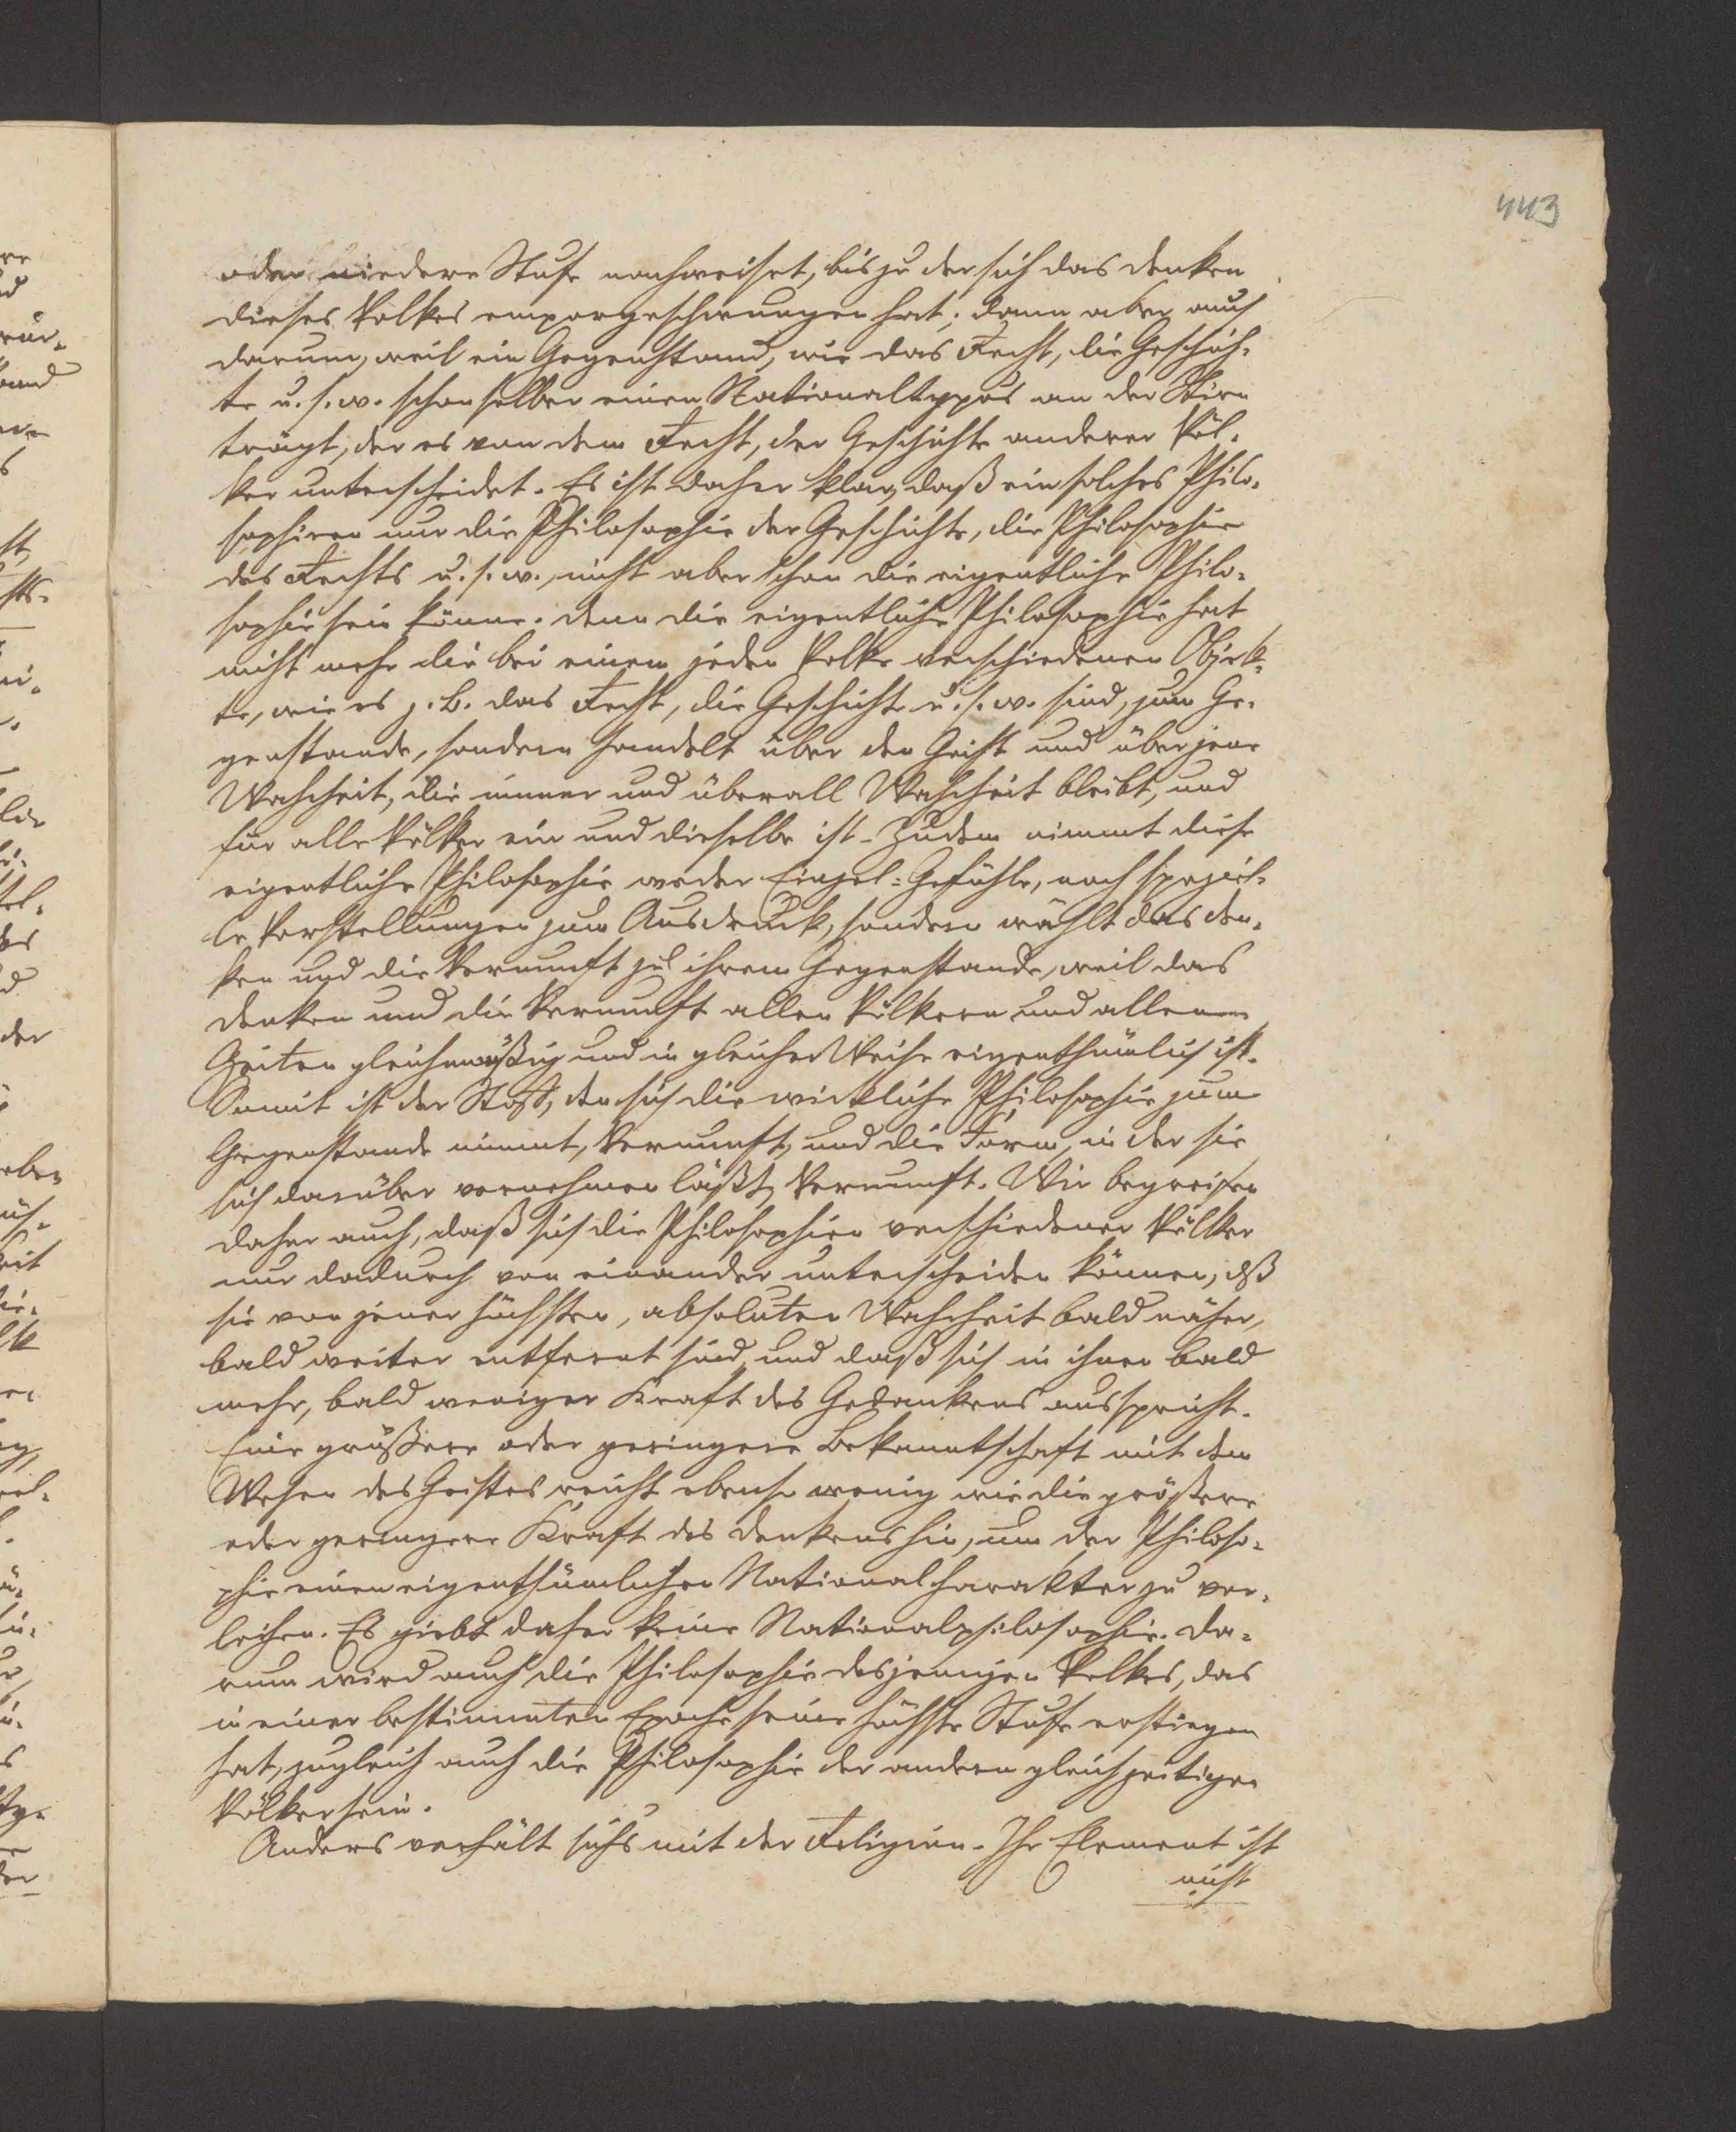 443
oder niedere Stufe nachweiset, bis zu der sich das Denken
dieses Volkes emporgeschwungen hat; dann aber auch
darum, weil ein Gegenstand, wie das Recht, die Geschich-
te u. s. w. schon selber einen Nationaltypus an der Stirn
trägt, der es von dem Recht, der Geschichte anderer Völ-
ker unterscheidet. Es ist daher klar, daß ein solches Philo-
sophiren nur die Philosophie der Geschichte, die Philosophie
des Rechts u. s. w., nicht aber schon die eigentliche Philo-
sophie sein könne. Denn die eigentliche Philosophie hat
nicht mehr die bei einem jeden Volke verschiedenen Objek-
te, wie es z. B. das Recht, die Geschichte u. s. w. sind, zum Ge-
genstande, sondern handelt über den Geist und über jene
Wahrheit, die immer und überall Wahrheit bleibt, und
für alle Völker ein und dieselbe ist. Zudem nimmt diese
eigentliche Philosophie weder Einzel-Gefühle, noch speziel-
le Vorstellungen zum Ausdruck, sondern wählt das Den-
ken und die Vernunft zu ihrem Gegenstande, weil das
Denken und die Vernunft allen Völkern und allen
Zeiten gleichmäßig und in gleicher Weise eigenthümlich ist.
Somit ist der Stoff, den sich die wirkliche Philosophie zum
Gegenstande nimmt, Vernunft, und die Form, in der sie
sich darüber vernehmen läßt, Vernunft. Wir begreifen
daher auch, daß sich die Philosophien verschiedener Völker
nur dadurch von einander unterscheiden können, dß
sie von jener höchsten, absoluten Wahrheit bald näher,
bald weiter entfernt sind, und daß sich in ihnen bald
mehr, bald weniger Kraft des Gedankens ausspricht.
Eine größere oder geringere Bekanntschaft mit dem
Wesen des Geistes reicht ebenso wenig wie die größere
oder geringere Kraft des Denkens hin, um der Philoso-
phie einen eigenthümlichen Nationalcharakter zu ver-
leihen. Es giebt daher keine Nationalphilosophie. Da-
rum wird auch die Philosophie desjenigen Volkes, das
in einer bestimmten Epoche seine höchste Stufe erstiegen
hat, zugleich auch die Philosophie der andern gleichzeitigen
Völker sein.
Anders verhält sichs mit der Religion. Ihr Element ist
nicht